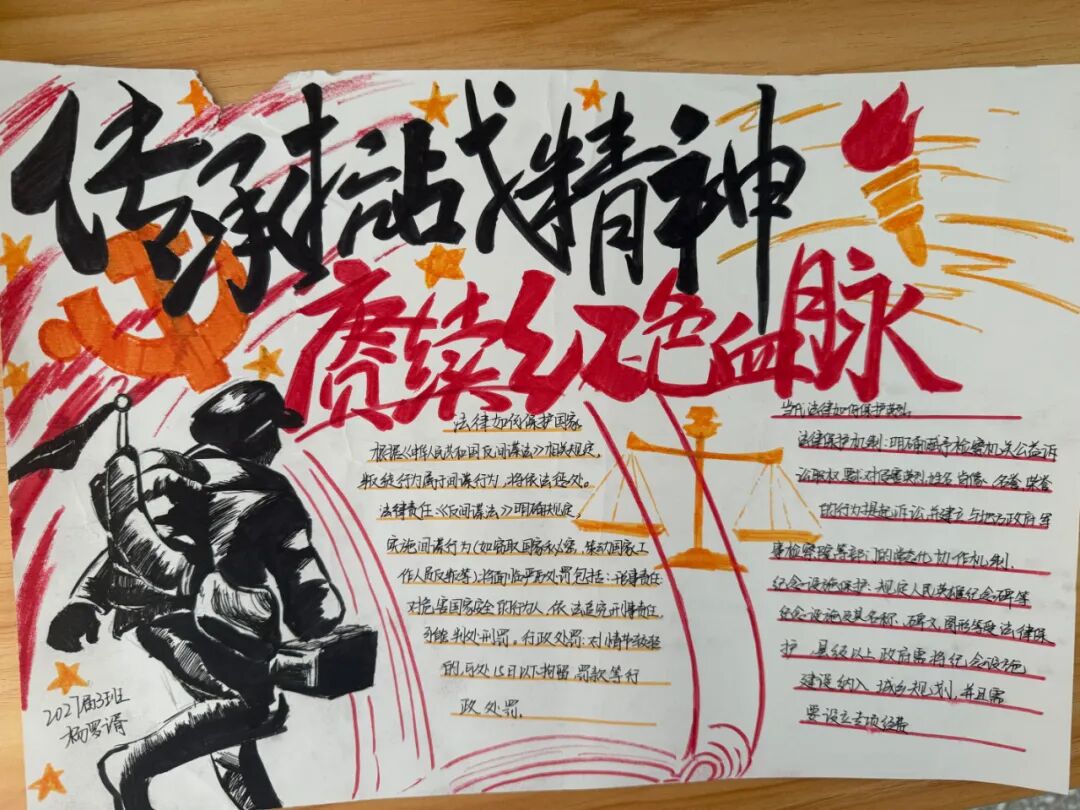 传承抗战精神
赓续红色血脉
法律如何保护国家
根据《中华人民共和国反间谍法》相关规定,
叛经行为属于间谍行为,将依法惩处。
法律责任:《反间谍法》明确规定,
实施间谍行为(如窃取国家秘密、策动国家工
作人员叛变等)将面临严厉处罚包括:刑事责任
对危害国家安全的行为人,依法追究刑事责任
可能判处刑罚。行政处罚:对情节较轻
的,可处15日以下拘留 罚款等行
政处罚.
当代法律如何保护英烈
法律保护机制:明确赋予检察机关公益诉
讼职权,要求对侵害英烈姓名 肖像、名誉、荣誉
的行为提起诉讼,并建立与地方政府军
事检察院等部门的常态化协作机制.
纪念设施保护:规定人民英雄纪念碑等
纪念设施及其名称、碑文、图形等受法律保
护 县级以上政府需将纪念设施
建设纳入 城乡规划,并且需
要设立专项经费
2027届3班
杨罗谞